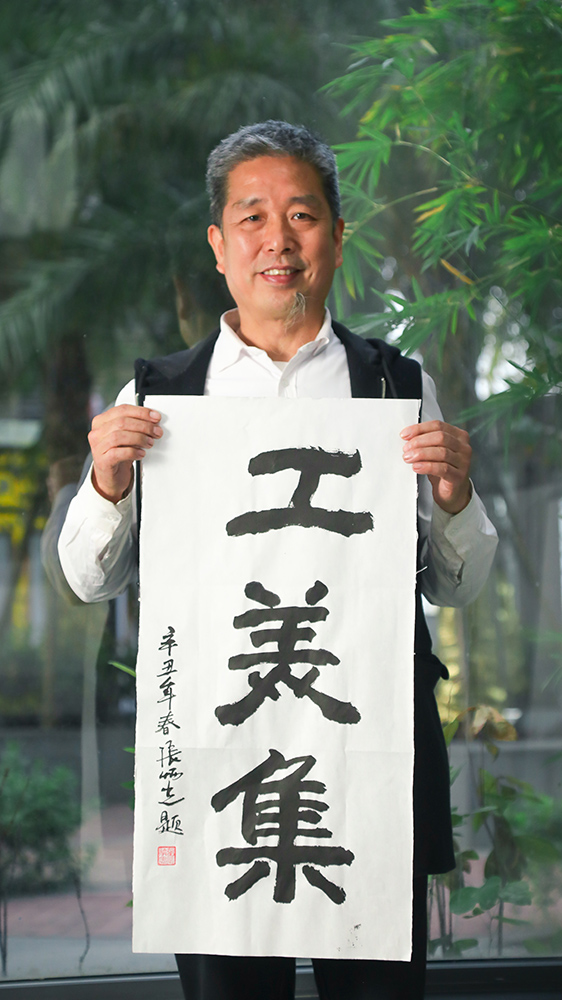 工美集
辛丑年春張炳光題